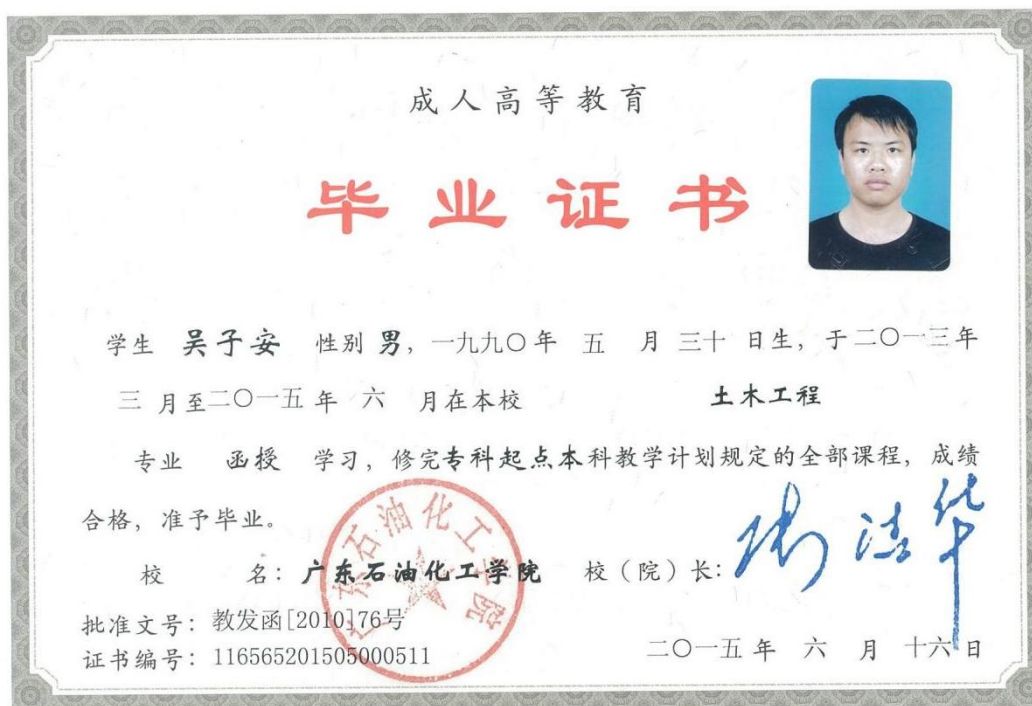 成人高等教育
毕业证书
学生 吴子安 性别 男，一九九〇年 五 月 三十 日生，于二〇一三年
三 月至二〇一五 年 六 月在本校 土木工程
专业 函授 学习，修完专科起点本科教学计划规定的全部课程，成绩
合格，准予毕业。
校 名：广东石油化工学院 校（院）长：
广东石油化工学院
批准文号：教发函[2010]76号
证书编号：116565201505000511
二〇一五 年 六 月 十六 日